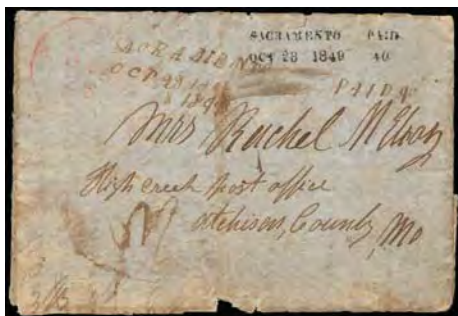 SACRAMENTO PAID
OCT 28 1849 40
SACRAMENTO
OCT 28
PAID
Mrs Rachel McElroy
High creek Post office
Atchison, County, Mo